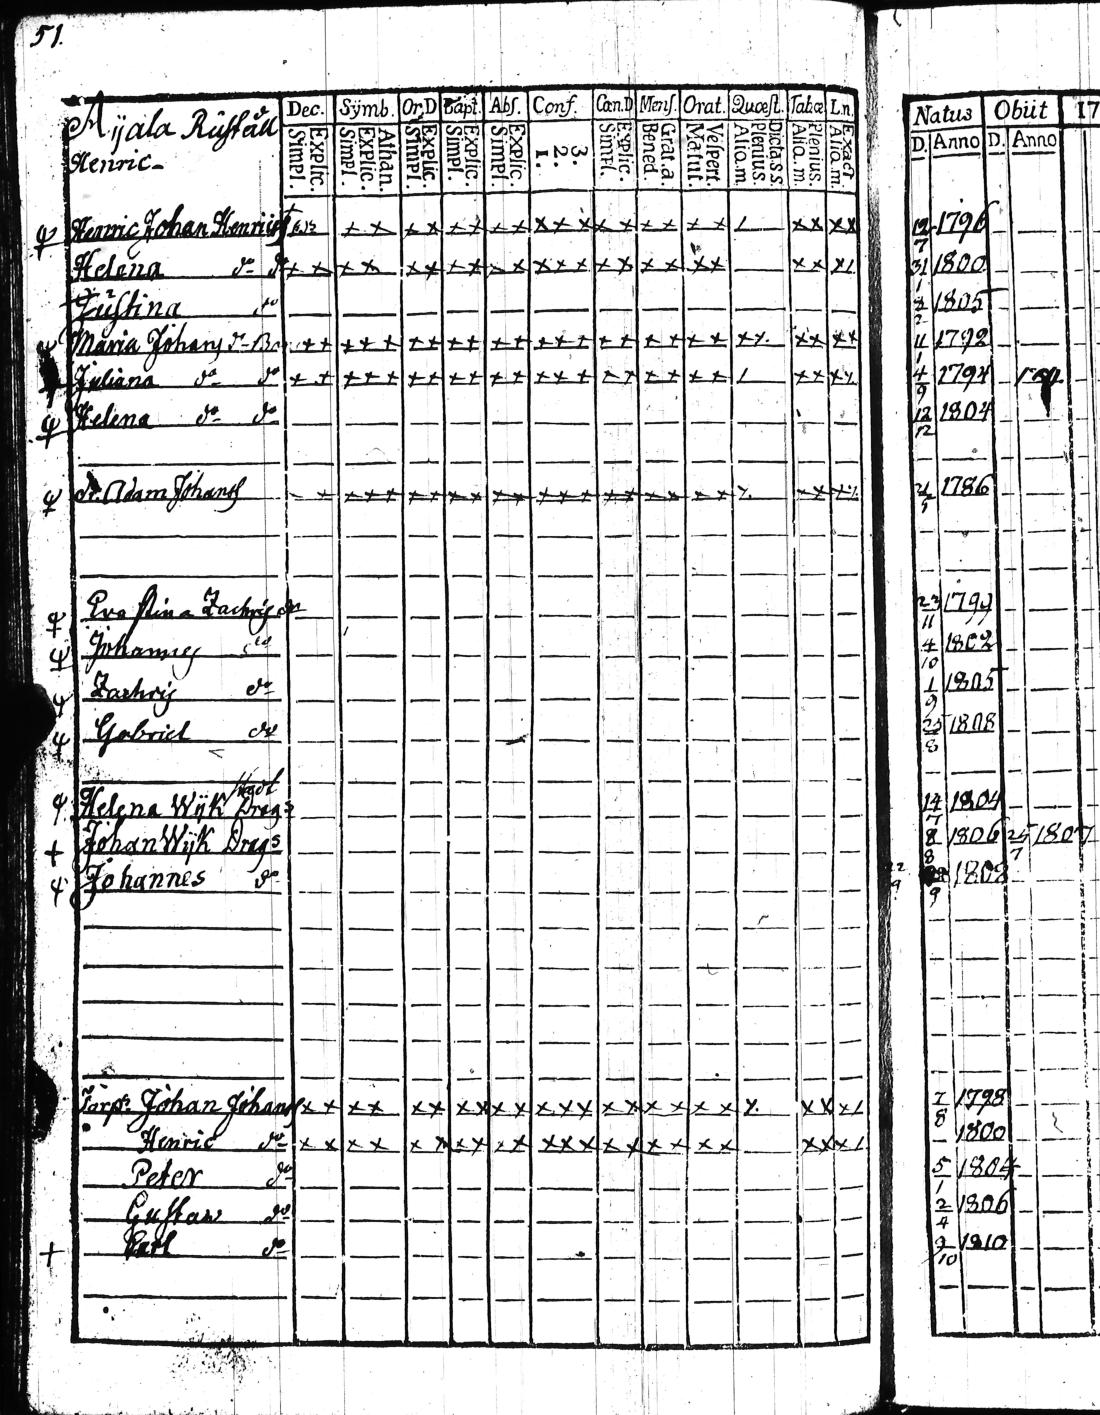 51.
Dec. Symb. Or.D Bapt. Abs. Conf. Cœn.D Mens. Orat. Quæst. Tabæ Ln. Natus Obiit 17
Mijala Rusthåll
Simpl. Explic. Simpl. Explic. Athan. Simpl. Explic. Simpl. Explic. Simpl. Explic. 1. 2. 3. Simpl. Explic. Bened. Grat.a Matut. Vespert. Alio.m Plenius. Dicta.s.s. Alio.m Plenius. Alio.m Exact D. Anno D. Anno
Henric
Henric Johan Henrics x x x x x x x x x x x x x x x x x x x / x x x x 12/7 1796
Helena do do x x x x x x x x x x x x x x x x x x x x x / 31/1 1800
Justina do 8/2 1805
Maria Johans do x x x x x x x x x x x x x x x x x x x x x x x x x 11/1 1792
Juliana do do x x x x x x x x x x x x x x x x x x x x / x x x x 4/9 1794
Helena do do 12/12 1804
Adam Johans x x x x x x x x x x x x x x x x x x x x x x x 1786
Eva Stina Zachrisdr 23/11 1799
Johannes do 4/10 1802
Zachris do 1/9 1805
Gabriel do 25/8 1808
Helena Wijk Drags 14/7 1804
Johan Wijk Drags 8/8 1806 25/7 1807
Johannes do 22/9 1808
Torp. Johan Johans x x x x x x x x x x x x x x x x x x x x x x / 7/8 1798
Henric do x x x x x x x x x x x x x x x x x x x x x / 1800
Peter do 5/1 1804
Gustaw do 2/4 1806
Carl do 9/10 1810